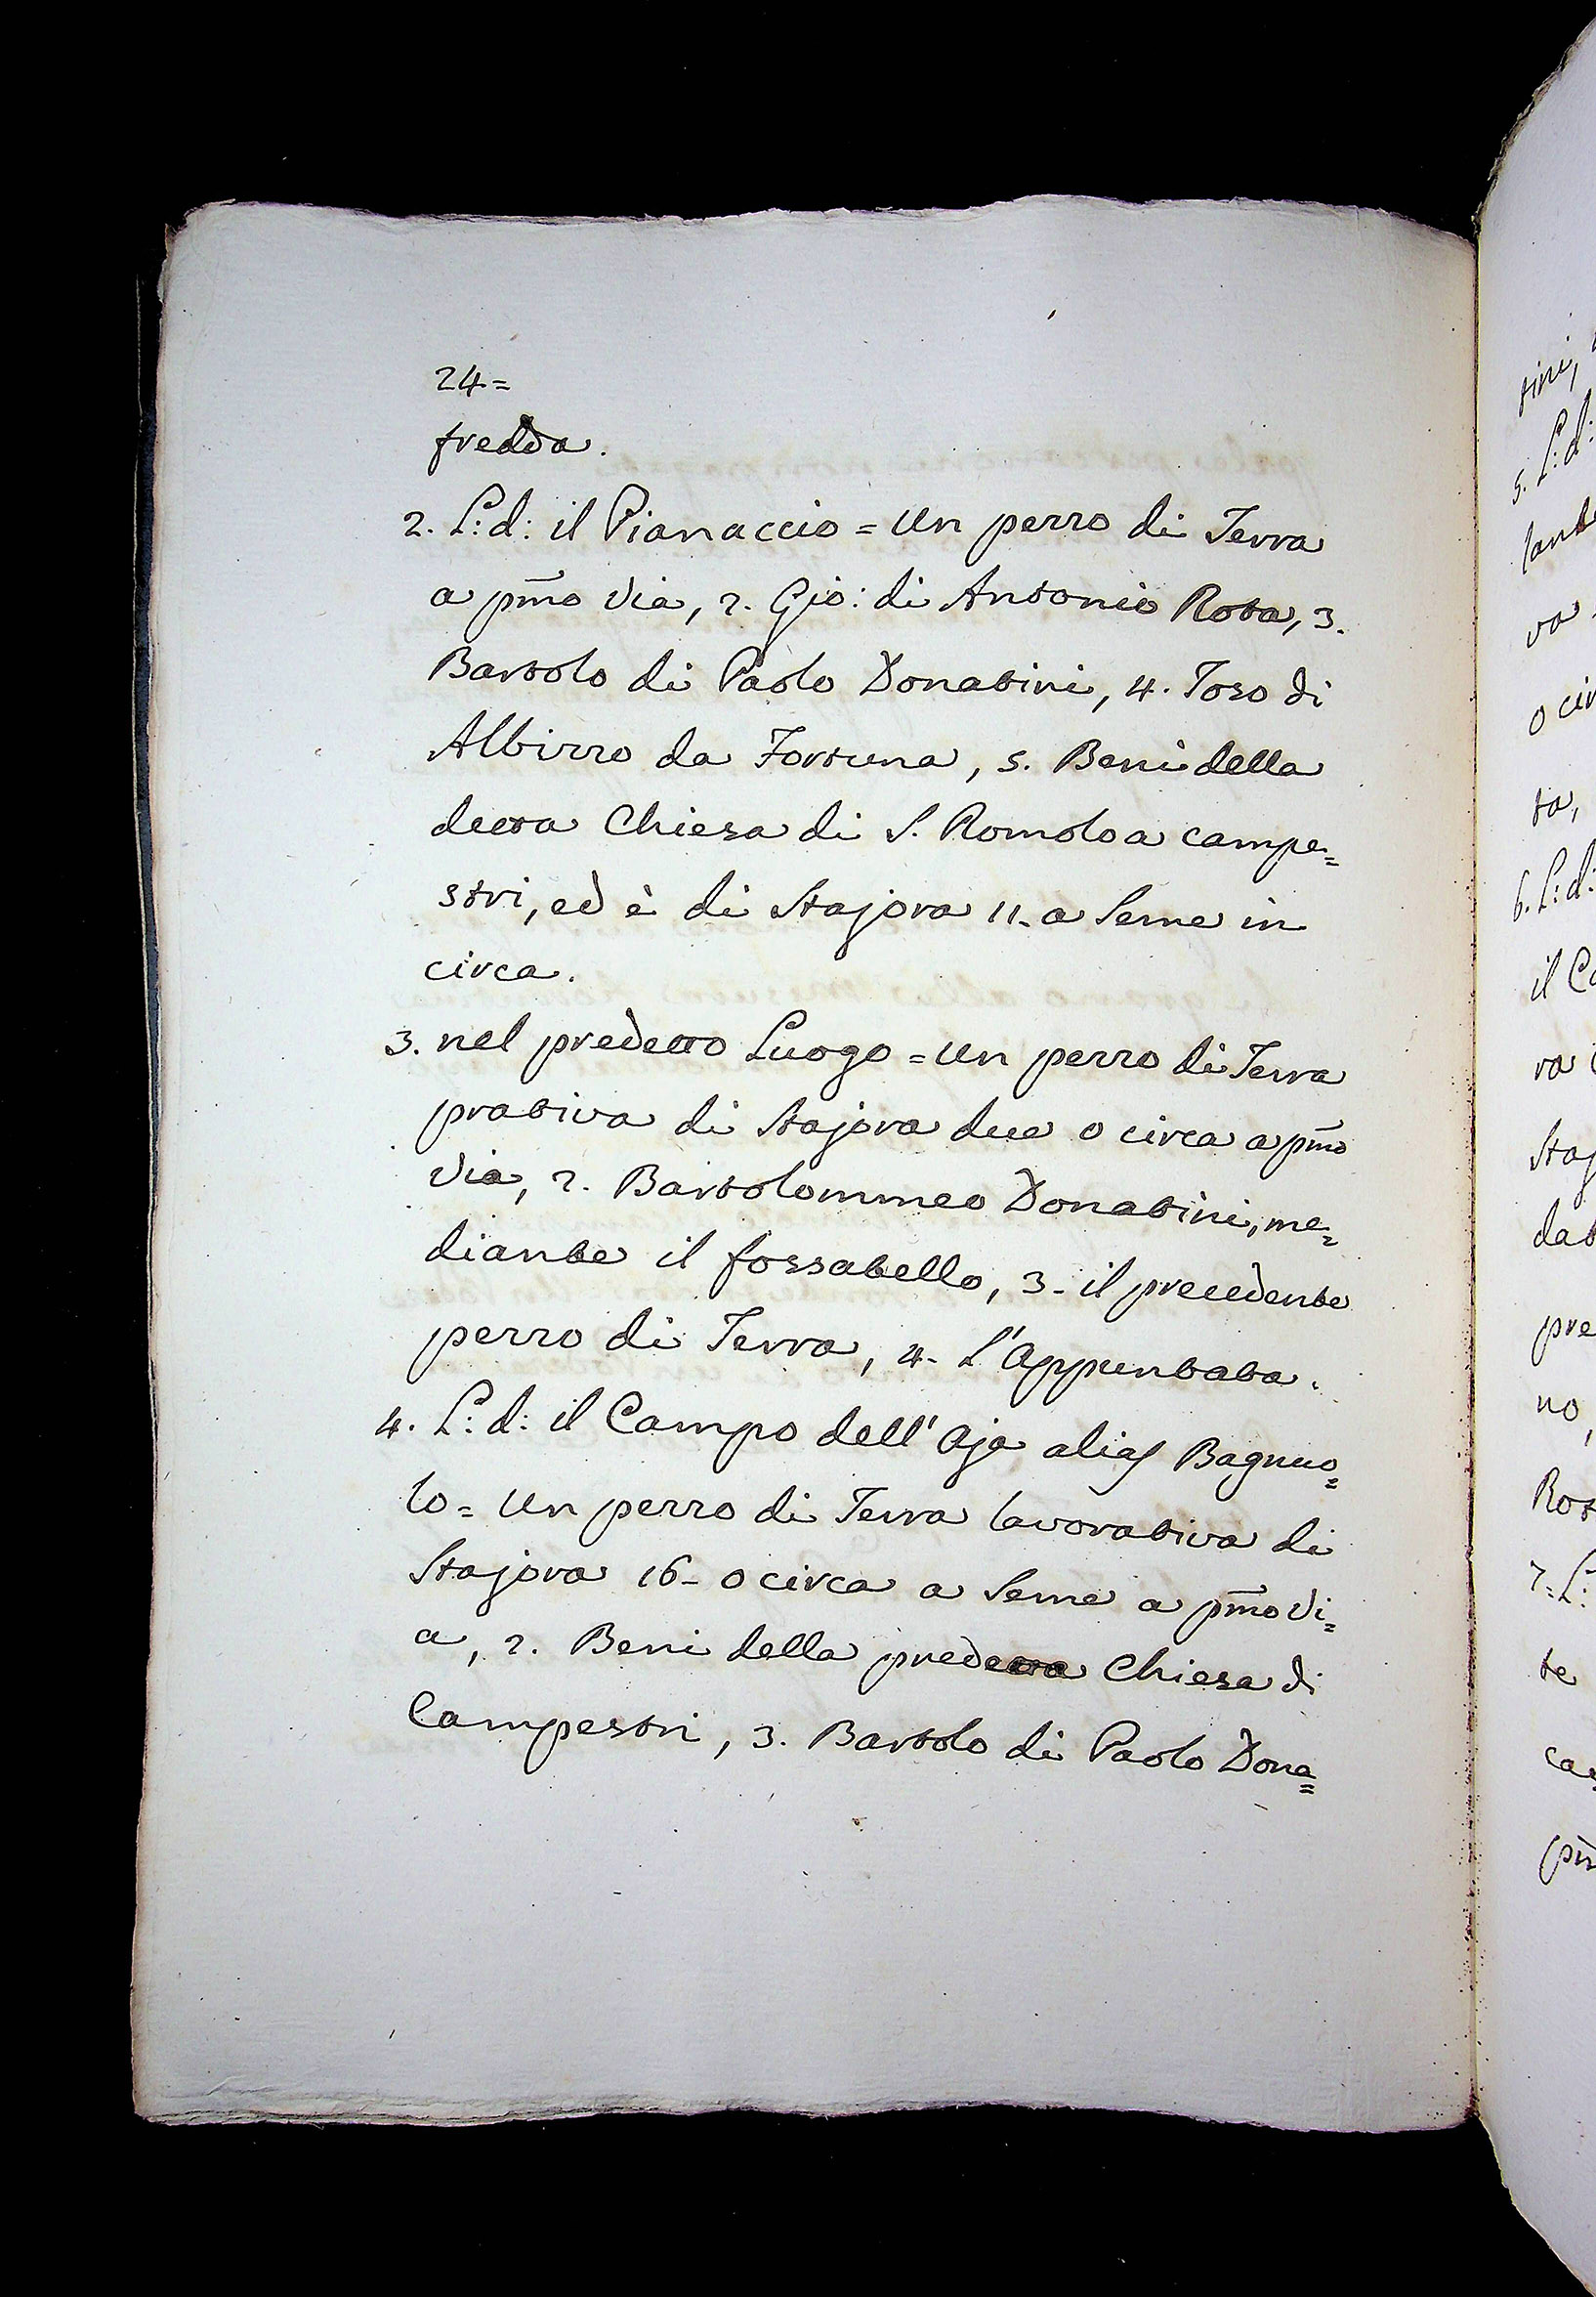 24=
fredda.
2. L: d: il Pianaccio = Un pezzo di Terra
a pmo Via, 2. Gio: di Antonio Rota, 3.
Bartolo di Paolo Donatini, 4. Toso di
Albizzo da Fortuna, 5. Beni della
detta Chiesa di S. Romolo a campe=
stri, ed è di Stajora 11- a Seme in
circa.
3. nel predetto Luogo = Un pezzo di Terra
prativa di Stajora due o circa a pmo
Via, 2. Bartolommeo Donatini, me=
diante il fossatello, 3- il precedente
pezzo di Terra, 4- l'Appuntata.
4. L: d: il Campo dell' Aja alias Bagnuo=
lo= Un pezzo di Terra lavorativa di
Stajora 16- o circa a Seme a pmo Vi=
a, 2. Beni della predetta Chiesa di
Campestri, 3. Bartolo di Paolo Dona=
tini,
5. L: d:
lant
va
o cir
ta,
6. L: d:
il Ca
ra
Staj
dat
pre
no,
Rot
7= L:
te
ca